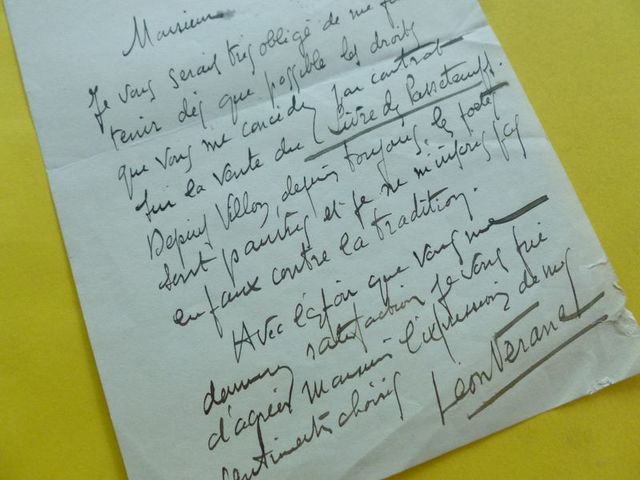 Monsieur
Je vous serais très obligé de me f
tenir dès que possible les droits
que vous me concédez par contrat
sur la vente du Livre des Passetemps.
Depuis Villon, depuis toujours, les poètes
sont pauvres et je ne m'inscris pas
en faux contre la tradition.
Avec l'espoir que vous me
donnerez satisfaction je vous prie
d'agréer Monsieur l'expression de mes
sentiments choisis
Léon Vérane